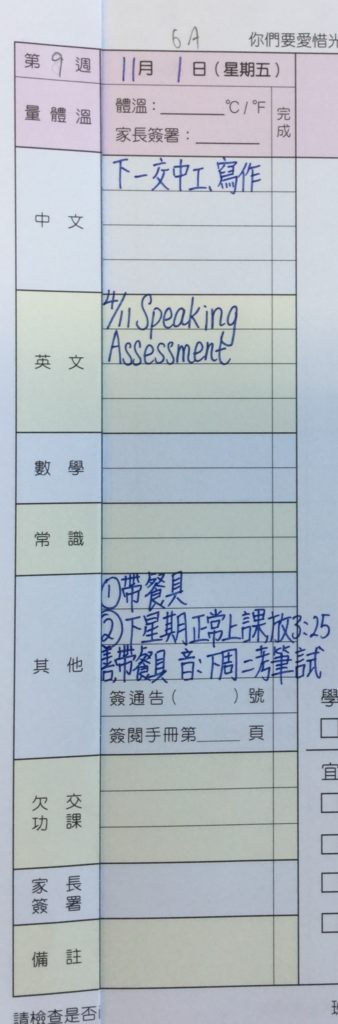 6A 你們要愛惜光
第9週 11月1日(星期五)
量體溫 體溫:______°C/°F 完成
家長簽署:______
中文 下一交中工、寫作
英文 4/11 Speaking
Assessment
數學
常識
其他 ①帶餐具
②下星期正常上課,放3:25
帶餐具 音:下周二考筆試
簽通告( )號
簽閱手冊第____頁
學
宜
欠交
功課
家長
簽署
備註
請檢查是否